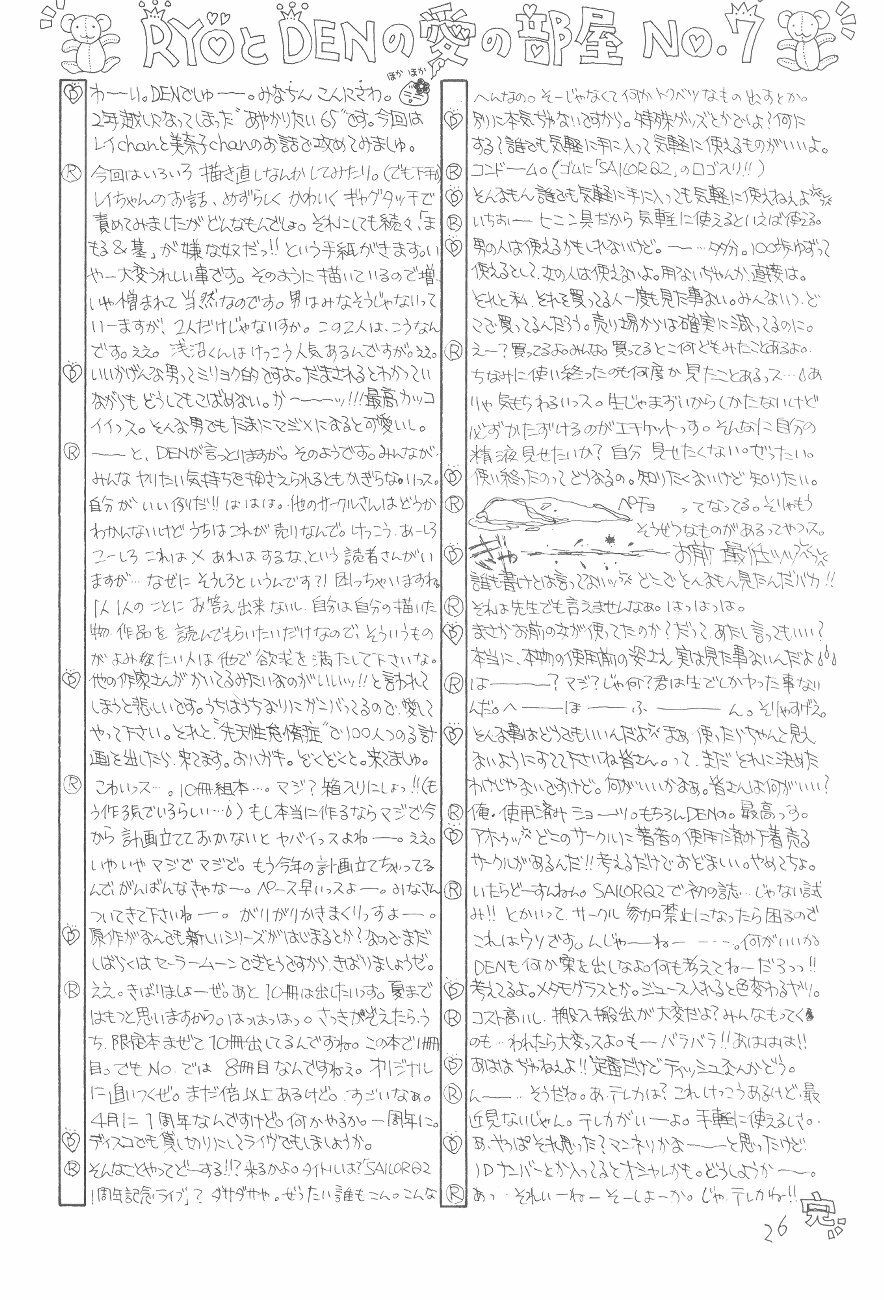 RYOとDENの愛の部屋 No.7
ほか ほか
D わーい。DENでしゅー。みなちん こんにさわ。
2年越しになってしまった"あやかりたい65"です。今回は
レイchanと美奈子chanのお話で攻めてみましゅ。
R 今回はいろいろ 描き直しなんかしてみたり。(でも下手)
レイちゃんのお話、めずらしく かわいく ギャグタッチで
責めてみましたがどんなもんでしょ。それにしても続々、「ま
もる&基」が嫌な奴だっ!! という手紙がきます。い
やー大変うれしい事です。そのように描いているので増、
いや憎まれて 当然なのです。男はみなそうじゃないって
いーますが、2人だけじゃないすか。この2人は、こうなん
です。ええ。浅沼くんはけっこう人気あるんですが。ええ。
D いいかげんな男ってミリョク的ですよ。だまされるとわかってい
ながらも どうしてもこばめない。かーーッ!!!最高カッコ
イイっス。そんな男でもたまにマジメになると可愛いし。
R ーーと、DENが言っとりますが。そのようです。みんなが、
みんな ヤりたい気持ちを押さえられるともかぎらないっス。
自分がいい例りだ!! ははは。他のサークルさんはどうか
わかんないけど うちはこれが売りなんで。けっこう、あーしろ
こーしろ これは× あれはするな、という読者さんがい
ますが…なぜに そうしろというんです?! 困っちゃいますね
1人1人のことに お答え出来ないし、自分は自分の描いた
物、作品を 読んでもらいたいだけなので、そういうもの
がよみたい人は他で欲求を満たして下さいな。
D 他の作家さんがかいてるみたいなのがいいいッ!!と言われて
しまうと悲しいです。うちはうちなりにガンバッてるので、愛して
やって下さい。それと"先天性怠惰症"で100人つのる計
画を出したら、来てます。おハガキ。どくどくと。来てましゅ。
R こわいっス…。10冊組本…。マジ?箱入りにしょっ!!(も
う作る気でいるらしい…) もし本当に作るならマジで今
から 計画立てておかないと ヤバイっスよねー。ええ。
いやいや マジで マジで。もう今年の計画立てちゃってる
んで、がんばんなきゃなー。ペース早いっスよー。みなさん
ついてきて下さいねー。がりがりかきまくりっすよー。
D 原作がなんでも新しいシリーズがはじまるとか?なのでまだ
しばらくはセーラームーンできそうですから、きばりましょうぜ。
R ええ。きばりましょーぜ。あと10冊は出したいっす。夏まで
はもつと思いますがら。はっはっはっ。さっきかぞえたら、う
ち、限定本まぜて10冊出してるんですね。この本で11冊
目。でもNo.では 8冊目なんですねえ。オリジナル
に追いつくぜ。まだ倍以上あるけど。すごいなぁ。
4月に1周年なんですけど。何かやるか。一周年に。
D ディスコでも貸しきりにしてライヴでもしましょうか。
R そんなことやってどーする!!?来るかよ。タイトルは?「SAILORQ2
1周年記念ライブ」? ダサダサや。ぜったい誰もこん。こんな
へんなの。そーじゃなくて何かトクベツなもの出すとか。
D 別に本気ぢゃないですから。特殊グッズとかでしょ?何に
する?誰でも気軽に手に入って気軽に使えるものがいいよ。
R コンドーム。(ゴムに「SAILORQ2」のロゴ入り!!)
D そんなもん誰でも気軽に手に入っても気軽に使えねえよ
R いちおー ヒニン具だから気軽に使えるといえば使える。
D 男の人は使えるかもしれないけど。ー…多分。100歩ゆずって
使えるとして、女の人は使えないよ。用ないぢゃんか、直接は。
それと私、それを買ってる人一度も見た事ない。みんないつ、ど
こで買ってるんだろう。売り場からは確実に減ってるのに。
R えー?買ってるよ。みんな。買ってるとこ何どもみたことあるよ。
ちなみに使い終ったのも何度か 見たことあるっス…あ
りゃ 気もちわるいっス。生じゃまずいからしかたないけど
必ずかたずけるのがエチケットっす。そんなに自分の
精液見せたいか?自分 見せたくない。ぜったい。
D 使い終ったのってどうなるの。知りたくないけど知りたい。
R ペチョ ってなってる。そりゃもう
そうぜつなものがあるってやつっス。
D ぎゃ お前 最低ッッ
誰も書けとは言ってないッ どこでそんなもん見たんだバカ!!
R それは先生でも言えませんなぁ。はっはっは。
D まさかお前の女が使ってたのか?だって、あたし言ってもいい?
本当に、本物の使用前の姿さえ 実は見た事ないんだよ
R はーーー?マジ?じゃ何?君は生でしかヤった事ない
んだ。へーーほーーふーーん。そりゃすげえ。
D そんな事はどうでもいいんだよ まぁ、使ったらちゃんと見え
ないようにすてて下さいね皆さん。って、まだそれに決めた
わけじゃないですけど。何がいいかなぁ。皆さんは何がいい?
R 俺・使用済みショーツ。もちろんDENの。最高っす。
D アホゥッ どこのサークルに著者の使用済み下着売る
サークルがあるんだ!!考えるだけでおぞましい。やめてちょ。
R いたらどーすんねん。SAILORQ2で初の誌…じゃない試
み!! とかいって サークル 参加禁止になったら困るので
これはウソです。んじゃーねー…。何がいいかな
DENも何か案を出しなよ。何も考えてねーだろっっ!!
D 考えてるよ。メタモグラスとか。ジュース入れると色変わるヤツ。
R コスト高いし、搬入搬出が大変だよ?みんなもってく
のも…われたら大変っスよ。もーバラバラ!!あははは!!
D あははぢゃねえよ!!定番だけどティッシュなんかどう。
R んー…そうだね。あ、テレカは? これ けっこうあるけど、最
近見ないじゃん。テレカがいーよ。手軽に使えるしさ。
D あ、やっぱそれ思った?マンネリかなーーと思ったけど。
IDナンバーとか入ってるとオシャレかも。どうしようかー。
R あっ…それいーねー そーしよーか。じゃ、テレカね!!
完
26